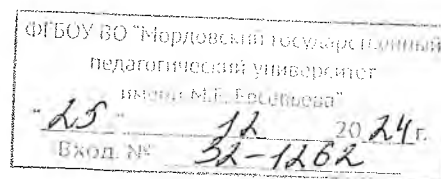 ФГБОУ ВО "Мордовский государственный
педагогический университет
имени М.Е. Евсевьева"
"25" 12 2024г.
Вход. № 32-1262